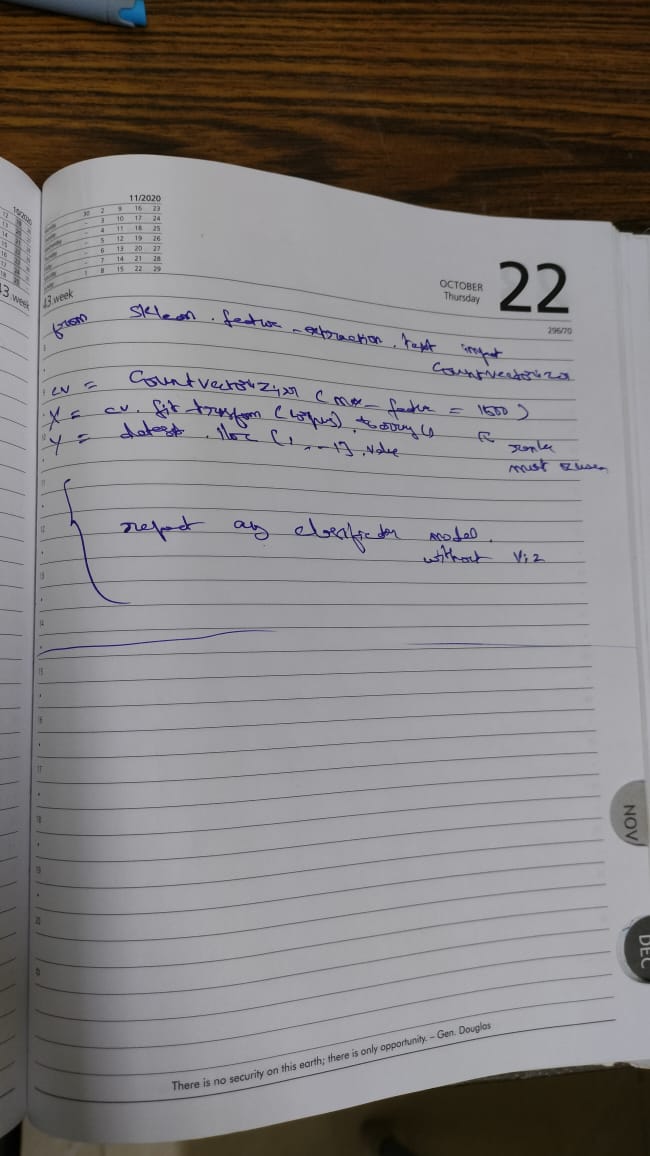 11/2020
30 2 9 16 23
- 3 10 17 24
- 4 11 18 25
- 5 12 19 26
- 6 13 20 27
- 7 14 21 28
1 8 15 22 29
43.week
OCTOBER
Thursday
22
296/70
from sklearn . feature - extraction . text import
CountVectorizer
cv = CountVectorizer ( max - feature = 1500 )
X = cv. fit - transform ( corpus) . toarray ()
Y = dataset . iloc [ : , -1] . value
must
repeat any classification model.
without Viz
NOV
DEC
There is no security on this earth; there is only opportunity. – Gen. Douglas